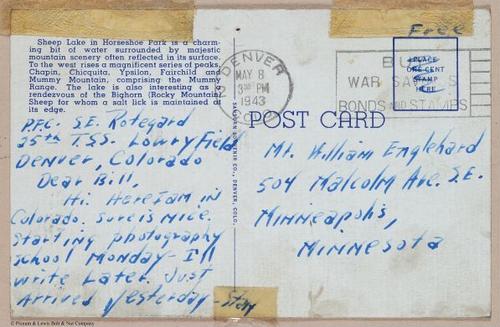 Sheep Lake in Horseshoe Park is a charm-
ing bit of water surrounded by majestic
mountain scenery often reflected in its surface.
To the west rises a magnificent series of peaks,
Chapin, Chicquita, Ypsilon, Fairchild and
Mummy Mountain, comprising the Mummy
Range. The lake is also interesting as a
rendezvous of the Bighorn (Rocky Mountain)
Sheep for whom a salt lick is maintained at
its edge.
P.F.C. S.E. Rotegard
25th T.S.S. Lowry Field
Denver, Colorado
Dear Bill,
Hi. Here I am in
Colorado. Sure is nice.
Starting photography
school Monday - I'll
write later. Just
Arrived yesterday - Stan
Free
DENVER
MAY 8
3 30 PM
1943
COLO.
BUY
WAR SAVINGS
BONDS AND STAMPS
PLACE
ONE CENT
STAMP
HERE
POST CARD
Mr. William Englehard
504 Malcolm Ave. S.E.
Minneapolis,
Minnesota
© Pioneer & Lewis Bolt & Nut Company